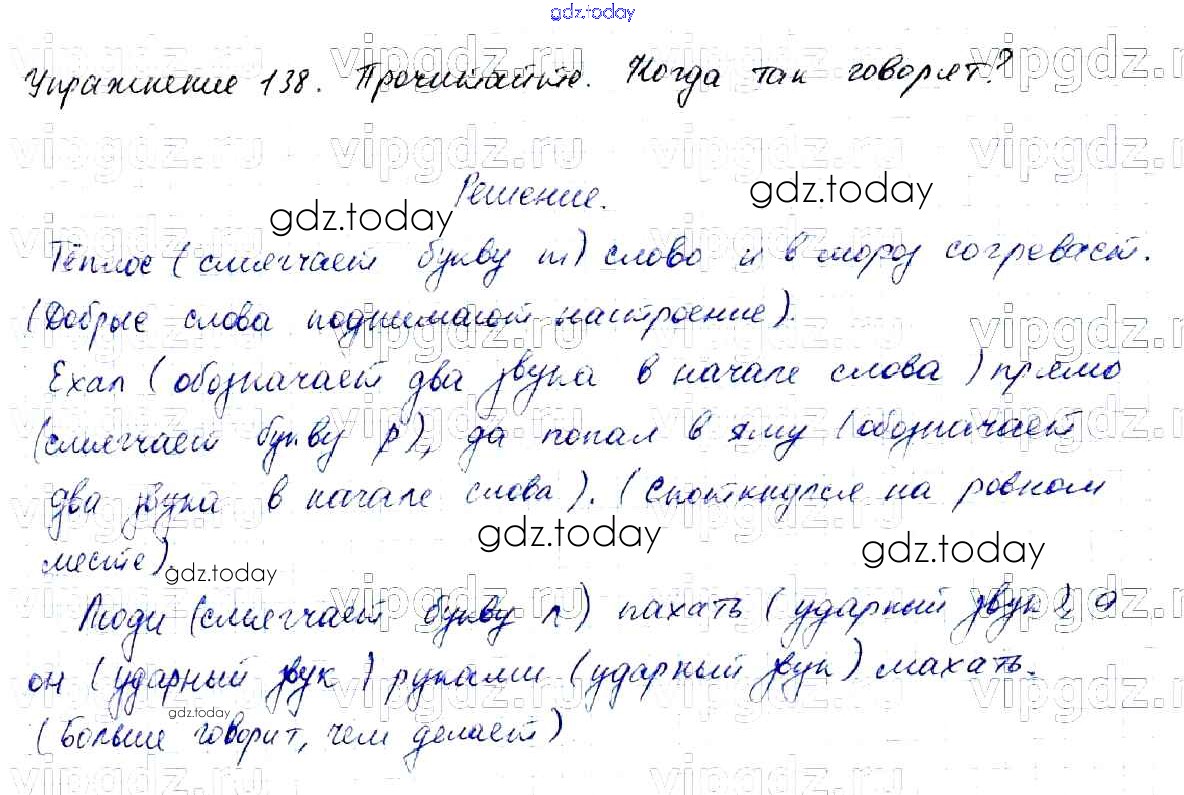 gdz.today
Упражнение 138. Прочитайте. Когда так говорят?
Решение.
Тёплое (смягчает букву т) слово и в мороз согревает.
(Добрые слова поднимают настроение).
Ехал (обозначает два звука в начале слова) прямо
(смягчает букву р), да попал в яму (обозначает
два звука в начале слова). (Споткнулся на ровном
месте).
Люди (смягчает букву л) пахать (ударный звук), а
он (ударный звук) руками (ударный звук) махать.
(Больше говорит, чем делает)
gdz.today
gdz.today
gdz.today
gdz.today
gdz.today
gdz.today
vipgdz.ru